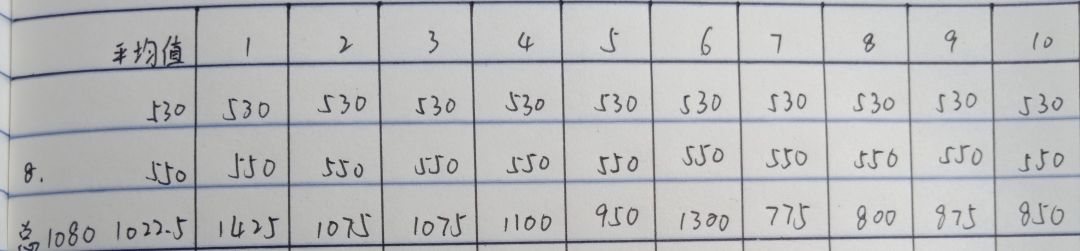 平均值 1 2 3 4 5 6 7 8 9 10
530 530 530 530 530 530 530 530 530 530 530
8. 550 550 550 550 550 550 550 550 550 550 550
总1080 1022.5 1425 1075 1075 1100 950 1300 775 800 875 850